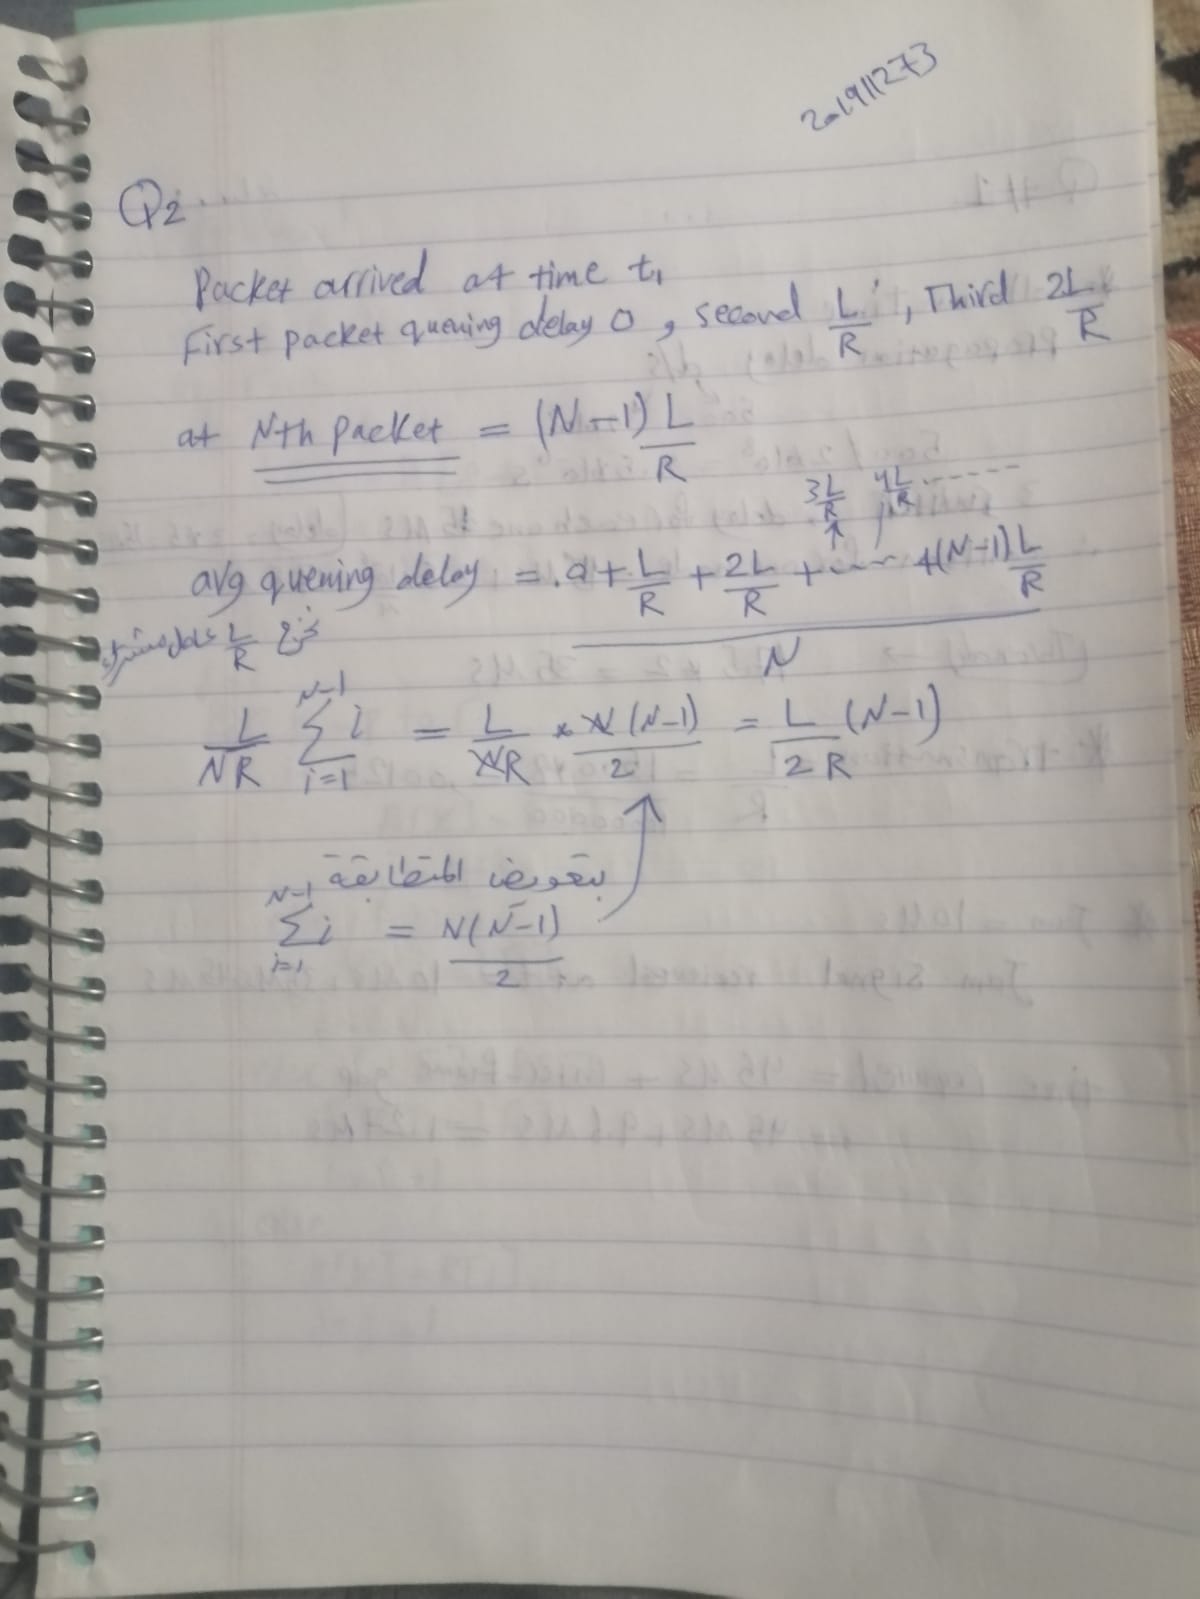 201911273
Q2
Packet arrived at time t1
First packet queuing delay 0, second L/R, Third 2L/R
at Nth packet = (N-1) L/R
3L/R 4L/R ------
avg queuing delay = (0 + L/R + 2L/R + ---- +(N-1) L/R) / N
نخرج L/R عامل مشترك
L/NR Σ_{i=1}^{N-1} i = L/NR * N(N-1)/2 = L/2R (N-1)
بتعويض المتطابقة
Σ_{i=1}^{N-1} i = N(N-1)/2